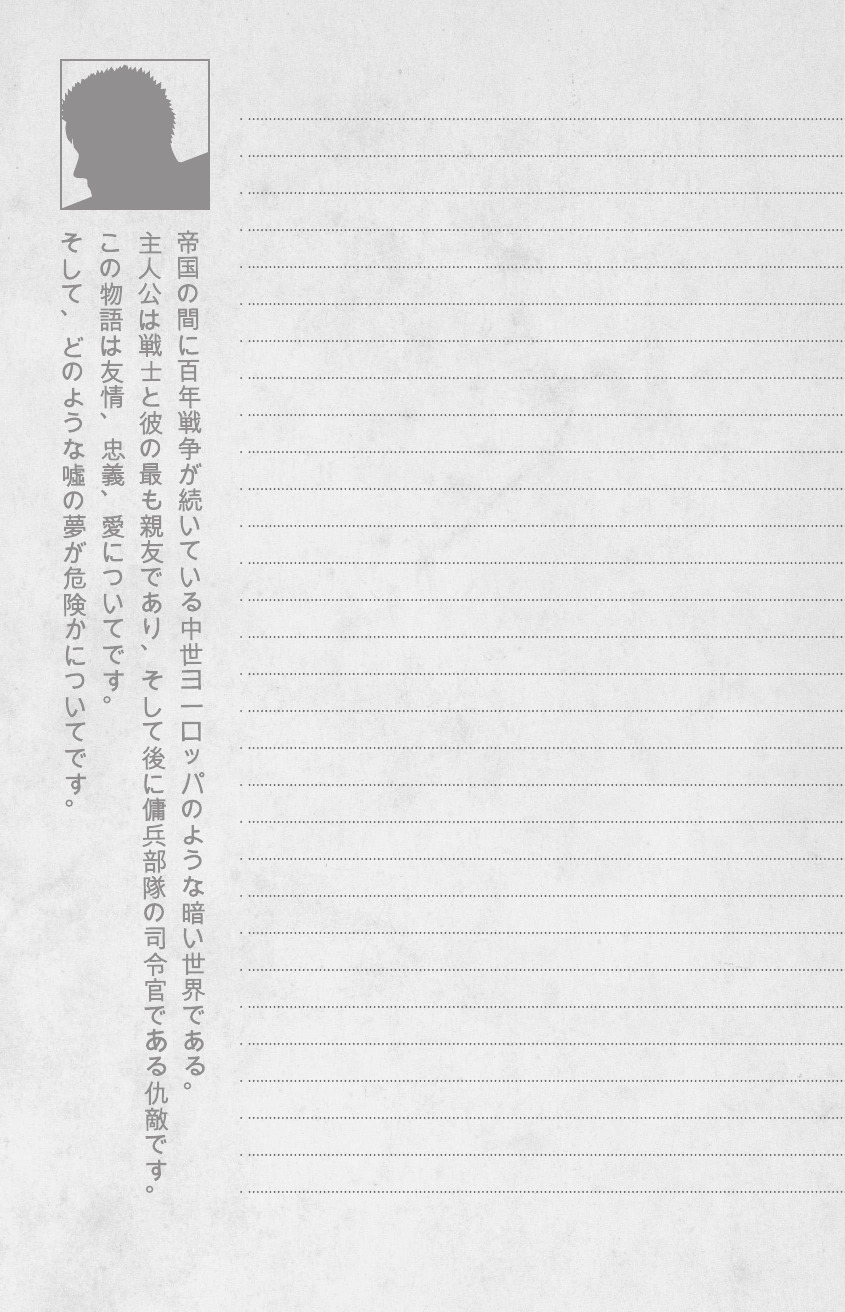 帝国の間に百年戦争が続いている中世ヨーロッパのような暗い世界である。
主人公は戦士と彼の最も親友であり、そして後に傭兵部隊の司令官である仇敵です。
この物語は友情、忠義、愛についてです。
そして、どのような嘘の夢が危険かについてです。